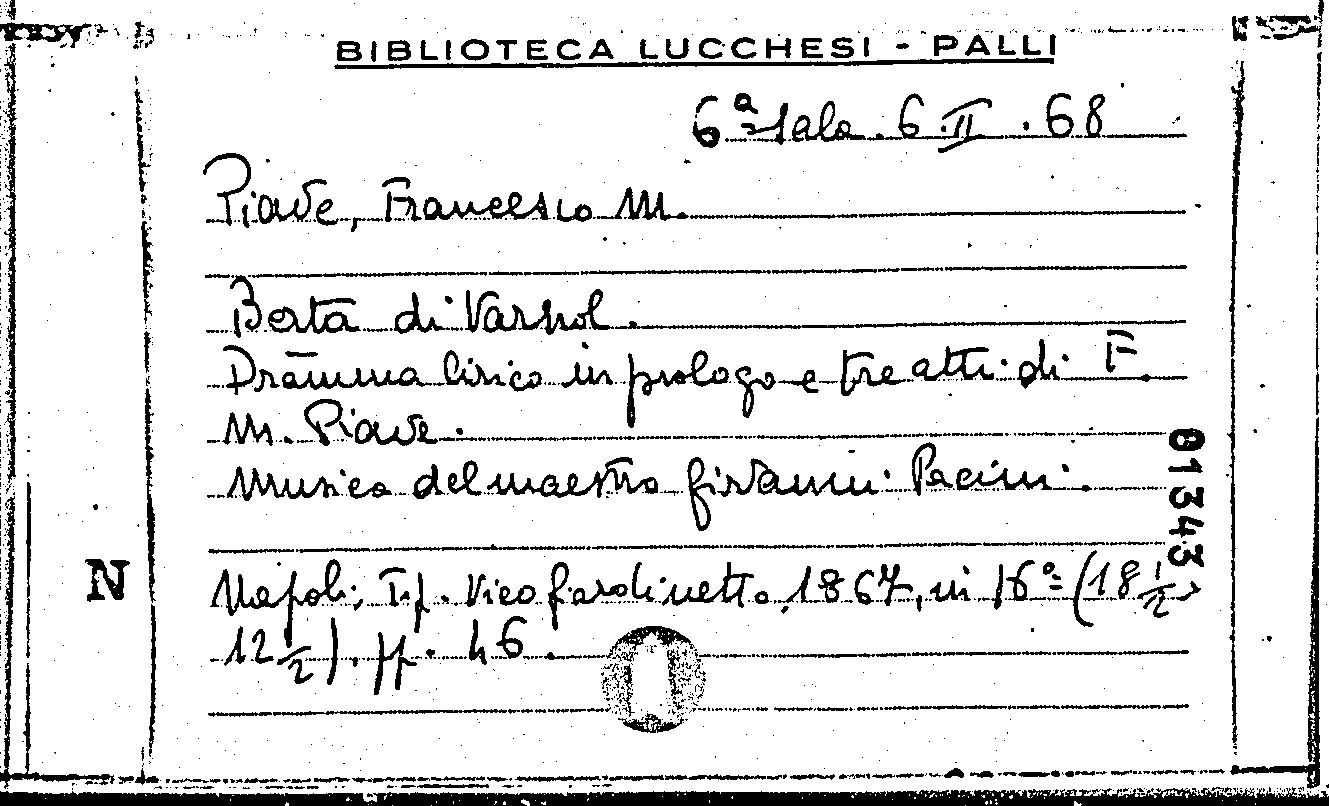 BIBLIOTECA LUCCHESI - PALLI
6ª Sala. 6. II. 68
Piave, Francesco M.
Berta di Varnol.
Dramma lirico in prologo e tre atti di F.
M. Piave.
Musica del maestro Giovanni Pacini.
01343
N
Napoli, Tip. Vico Gerolimetto, 1867, in 16º (18½ ×
12½). pp. 46.